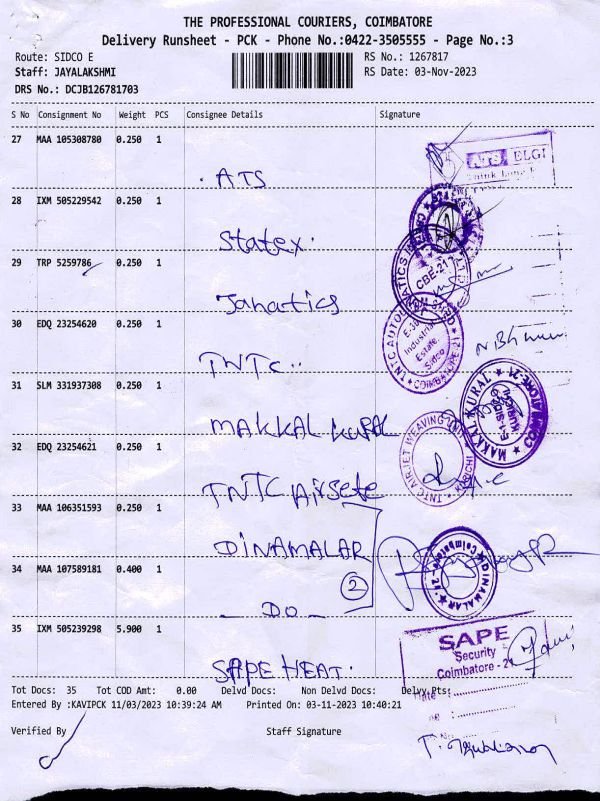 THE PROFESSIONAL COURIERS, COIMBATORE
Delivery Runsheet - PCK - Phone No.:0422-3505555 - Page No.:3
Route: SIDCO E
RS No.: 1267817
Staff: JAYALAKSHMI
RS Date: 03-Nov-2023
DRS No.: DCJB126781703
S No Consignment No Weight PCS Consignee Details Signature
27 MAA 105308780 0.250 1 ATS
ATS ELGI
28 IXM 505229542 0.250 1 Statex.
29 TRP 5259786 0.250 1 Janatics
CBE-21
30 EDQ 23254620 0.250 1 TNTC..
Industrial Estate, Sidco
COIMBATORE
31 SLM 331937308 0.250 1 MAKKAL KURAL
MAKKAL KURAL COIMBATORE-21
32 EDQ 23254621 0.250 1 TNTC Airsete
TNTC AIRJET WEAVING KURICHI
33 MAA 106351593 0.250 1 DINAMALAR
34 MAA 107589181 0.400 1 - DO - 2
DINAMALAR Coimbatore-21
35 IXM 505239298 5.900 1 SAPE HEAT.
SAPE
Security
Coimbatore - 21
Tot Docs: 35 Tot COD Amt: 0.00 Delvd Docs: Non Delvd Docs: Delvy Pts:
Entered By :KAVIPCK 11/03/2023 10:39:24 AM Printed On: 03-11-2023 10:40:21
Verified By Staff Signature